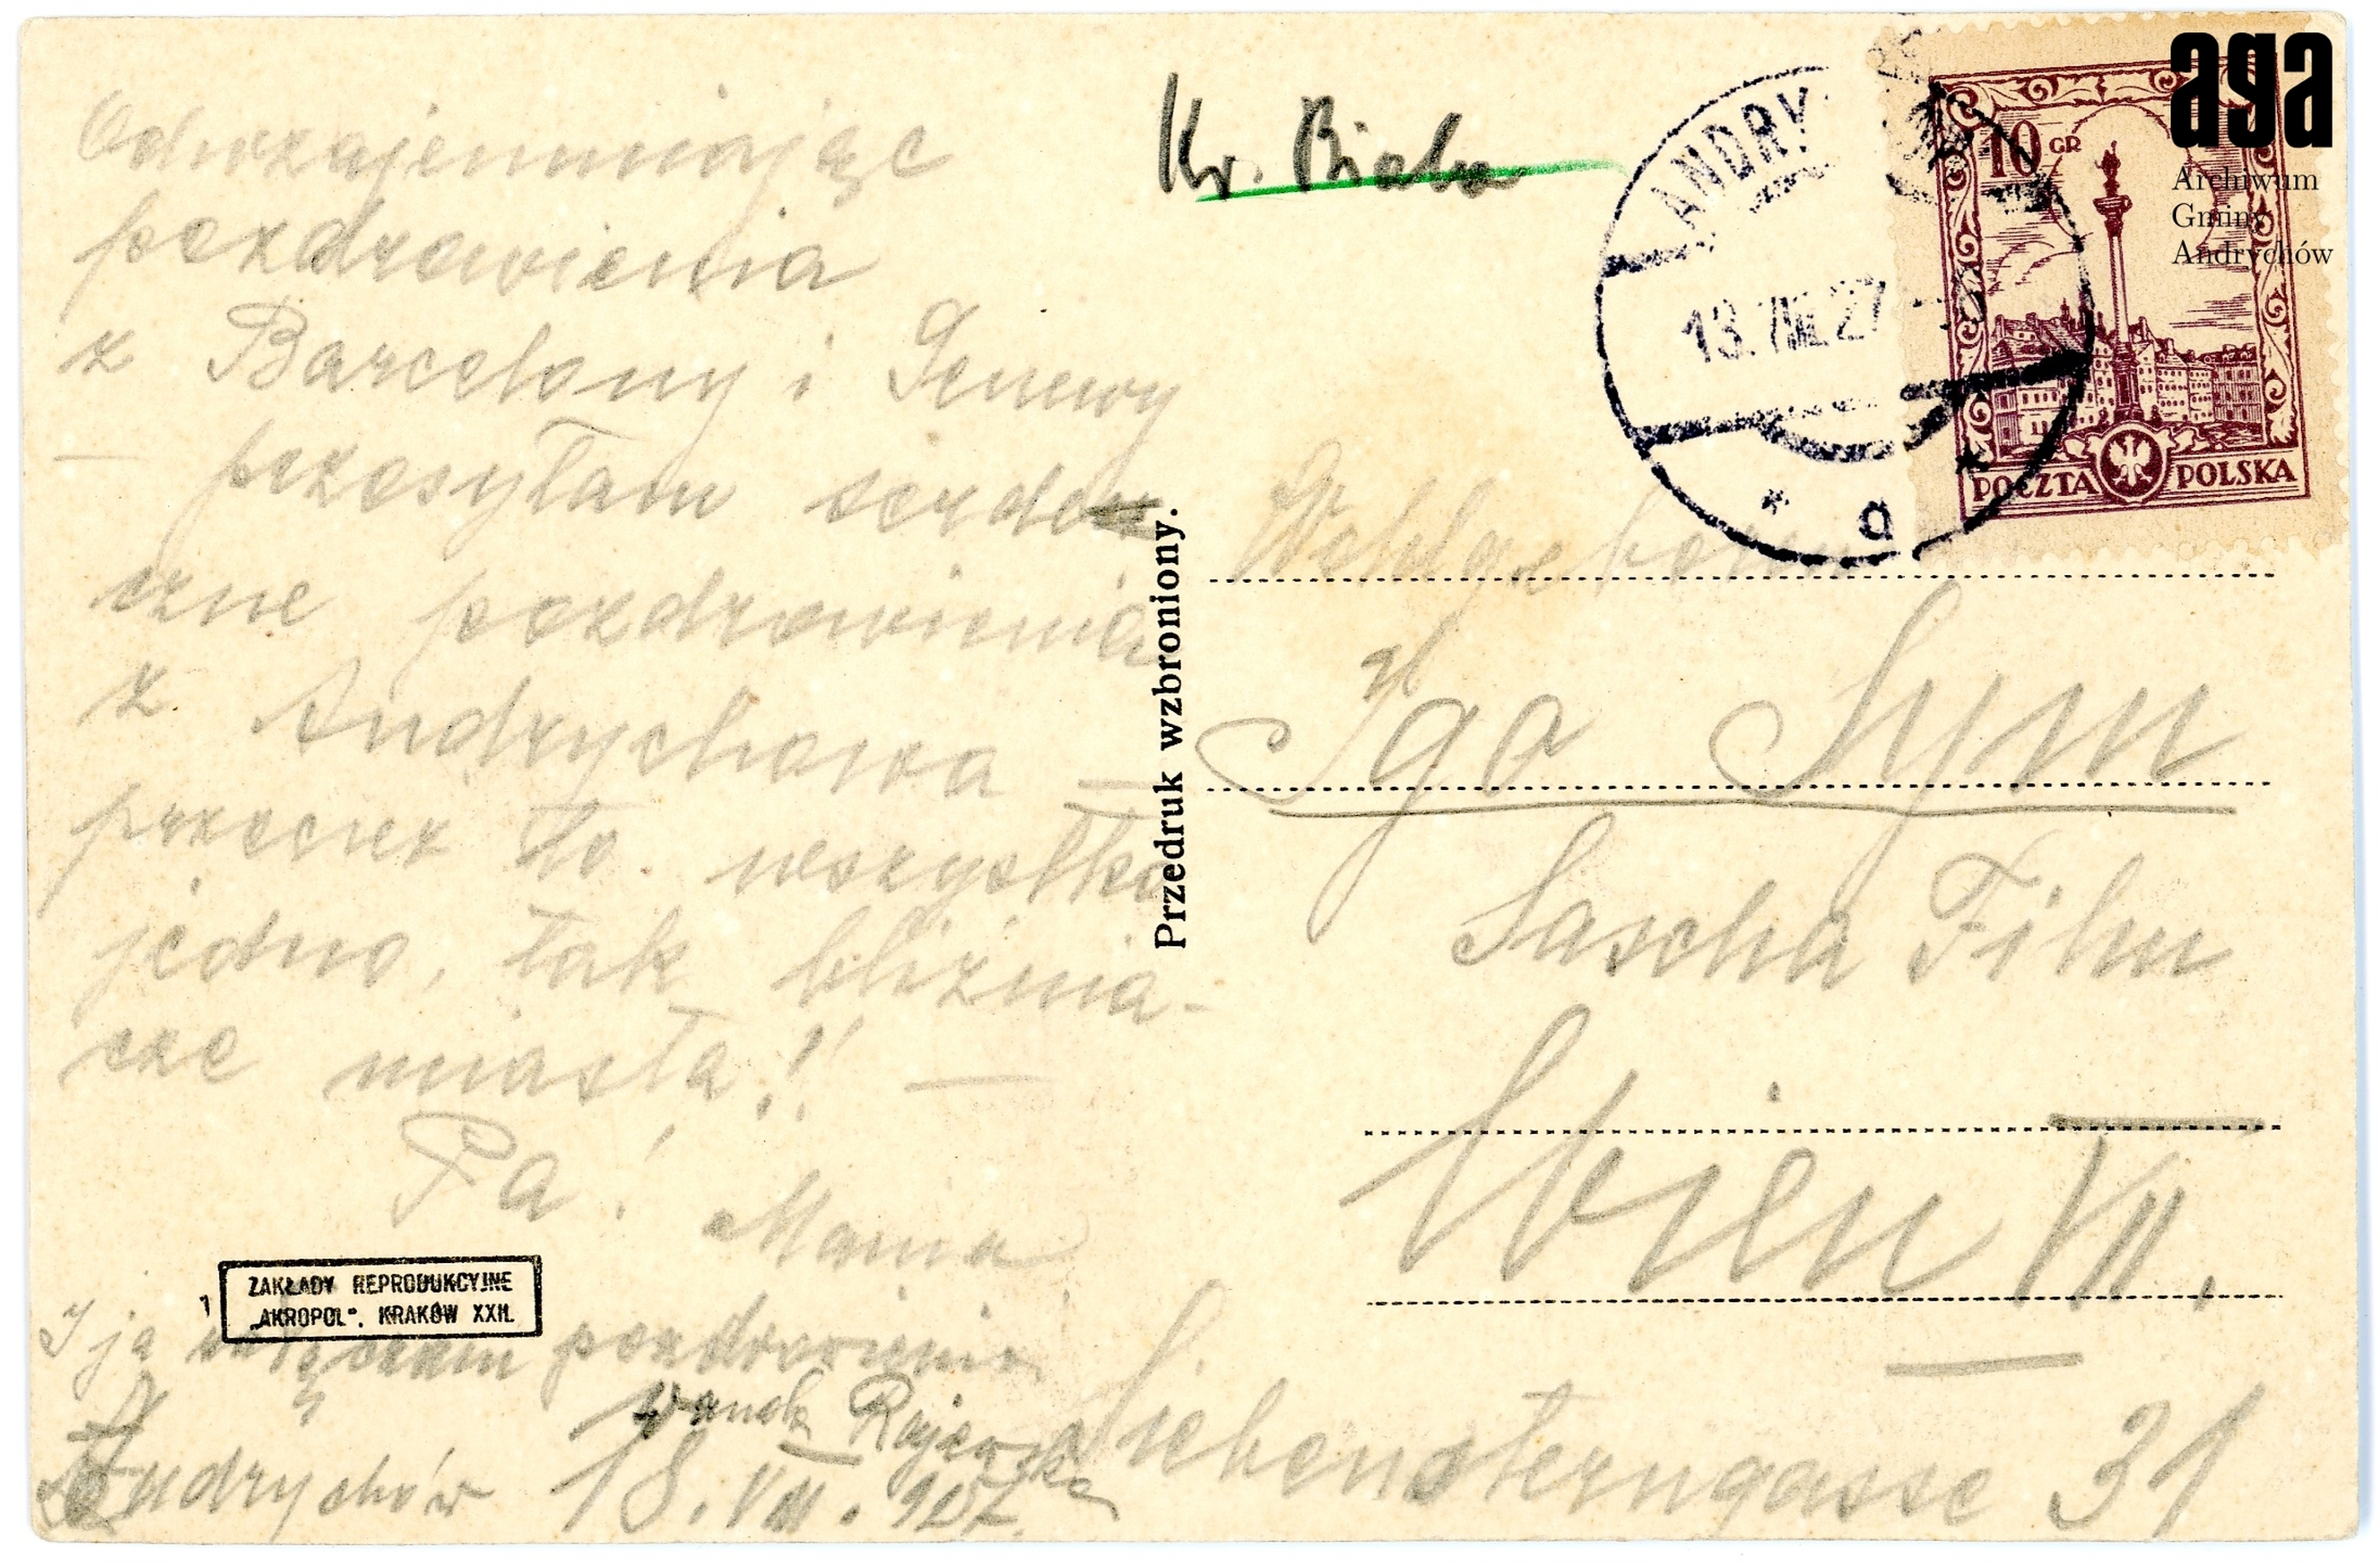 Odwzajemniając
pozdrowienia
z Barcelony i Genewy
– przesyłam serde
czne pozdrowienia
z Andrychowa –
przecież to wszystko
jedno, tak bliźnia-
cze miasta!! –
Pa!
Mania
ZAKŁADY REPRODUKCYJNE
„AKROPOL". KRAKÓW XXII.
I ja załączam pozdrowienia
Wanda Rajewska
Andrychów 18. VIII. 927.
Przedruk wzbroniony.
Kr. Biała
ANDRY
13. VIII. 27
* a *
10 GR
POCZTA POLSKA
aga
Archiwum
Gminy
Andrychów
Wohlgeboren
Igo Sym
Sascha Film
Wien VII.
Siebensterngasse 31